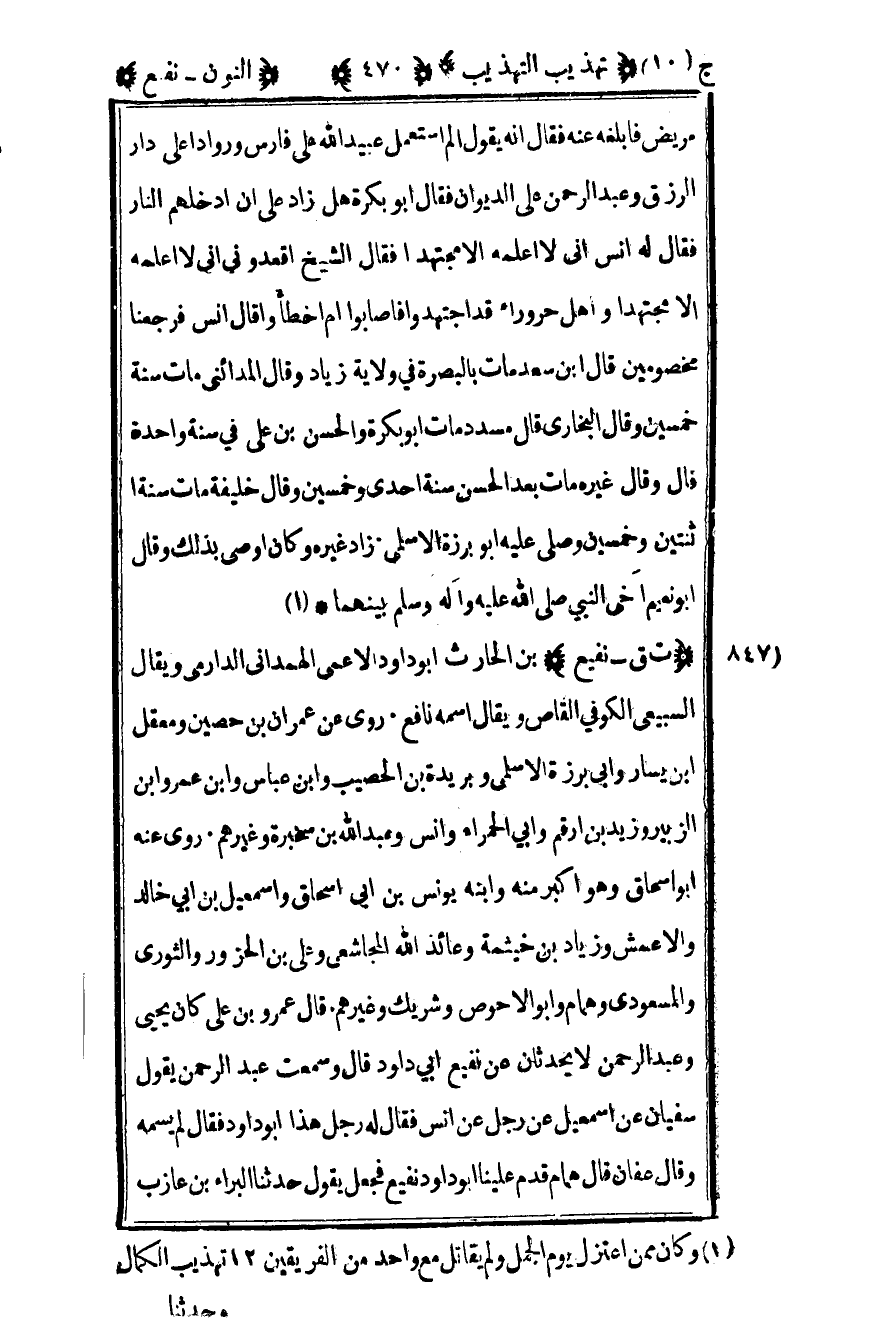 ج (١٠) ﴿ تهذيب التهذيب ﴾ ﴿ ٤٧٠ ﴾ ﴿ النون - نفيع ﴾
مريض فابلغه عنه فقال انه يقول الم استعمل عبيدالله على فارس وروادا على دار
الرزق وعبدالرحمن على الديوان فقال ابو بكرة هل زاد على ان ادخلهم النار
فقال له انس انى لا اعلمه الا مجتهدا فقال الشيخ اقعدو فى انى لا اعلمه
الا مجتهدا و أهل حروراء قد اجتهدوا فاصابوا ام اخطأوا قال انس فرجعنا
مخصومين قال ابن سعد مات بالبصرة في ولاية زياد وقال المدائنى مات سنة
خمسين وقال البخارى قال مسدد مات ابو بكرة والحسن بن على في سنة واحدة
قال وقال غيره مات بعد الحسن سنة احدى وخمسين وقال خليفة مات سنة ا
ثنتين وخمسين وصلى عليه ابو برزة الاسلمي ٠ زاد غيره وكان اوصى بذلك وقال
ابونعيم آخى النبي صلى الله عليه وآله وسلم بينهما * (١)
﴿ ت ق - نفيع ﴾ بن الحارث ابو داود الاعمى الهمدانى الدارمى ويقال
٨٤٧)
السبيعى الكوفي القاص ويقال اسمه نافع ٠ روى عن عمران بن حصين ومعقل
ابن يسار وابي برزة الاسلمي و بريدة بن الحصيب وابن عباس وابن عمر وابن
الزبير وزيد بن ارقم وابي الحمراء وانس وعبدالله بن سخبرة وغيرهم ٠ روى عنه
ابو اسحاق وهو اكبر منه وابنه يونس بن ابى اسحاق واسمعيل بن ابي خالد
والاعمش وزياد بن خيثمة وعائذ الله المجاشعى وعلى بن الحزور والثورى
والمسعودى وهمام وابو الاحوص وشريك وغيرهم ٠ قال عمرو بن على كان يحيى
وعبدالرحمن لا يحدثان عن نفيع ابي داود قال وسمعت عبد الرحمن يقول
سفيان عن اسمعيل عن رجل عن انس فقال له رجل هذا ابو داود فقال لم يسمه
وقال عفان قال همام قدم علينا ابو داود نفيع فجعل يقول حدثنا البراء بن عازب
(١) وكان ممن اعتزل يوم الجمل ولم يقاتل مع واحد من الفريقين ١٢ تهذيب الكمال
وحدثنا